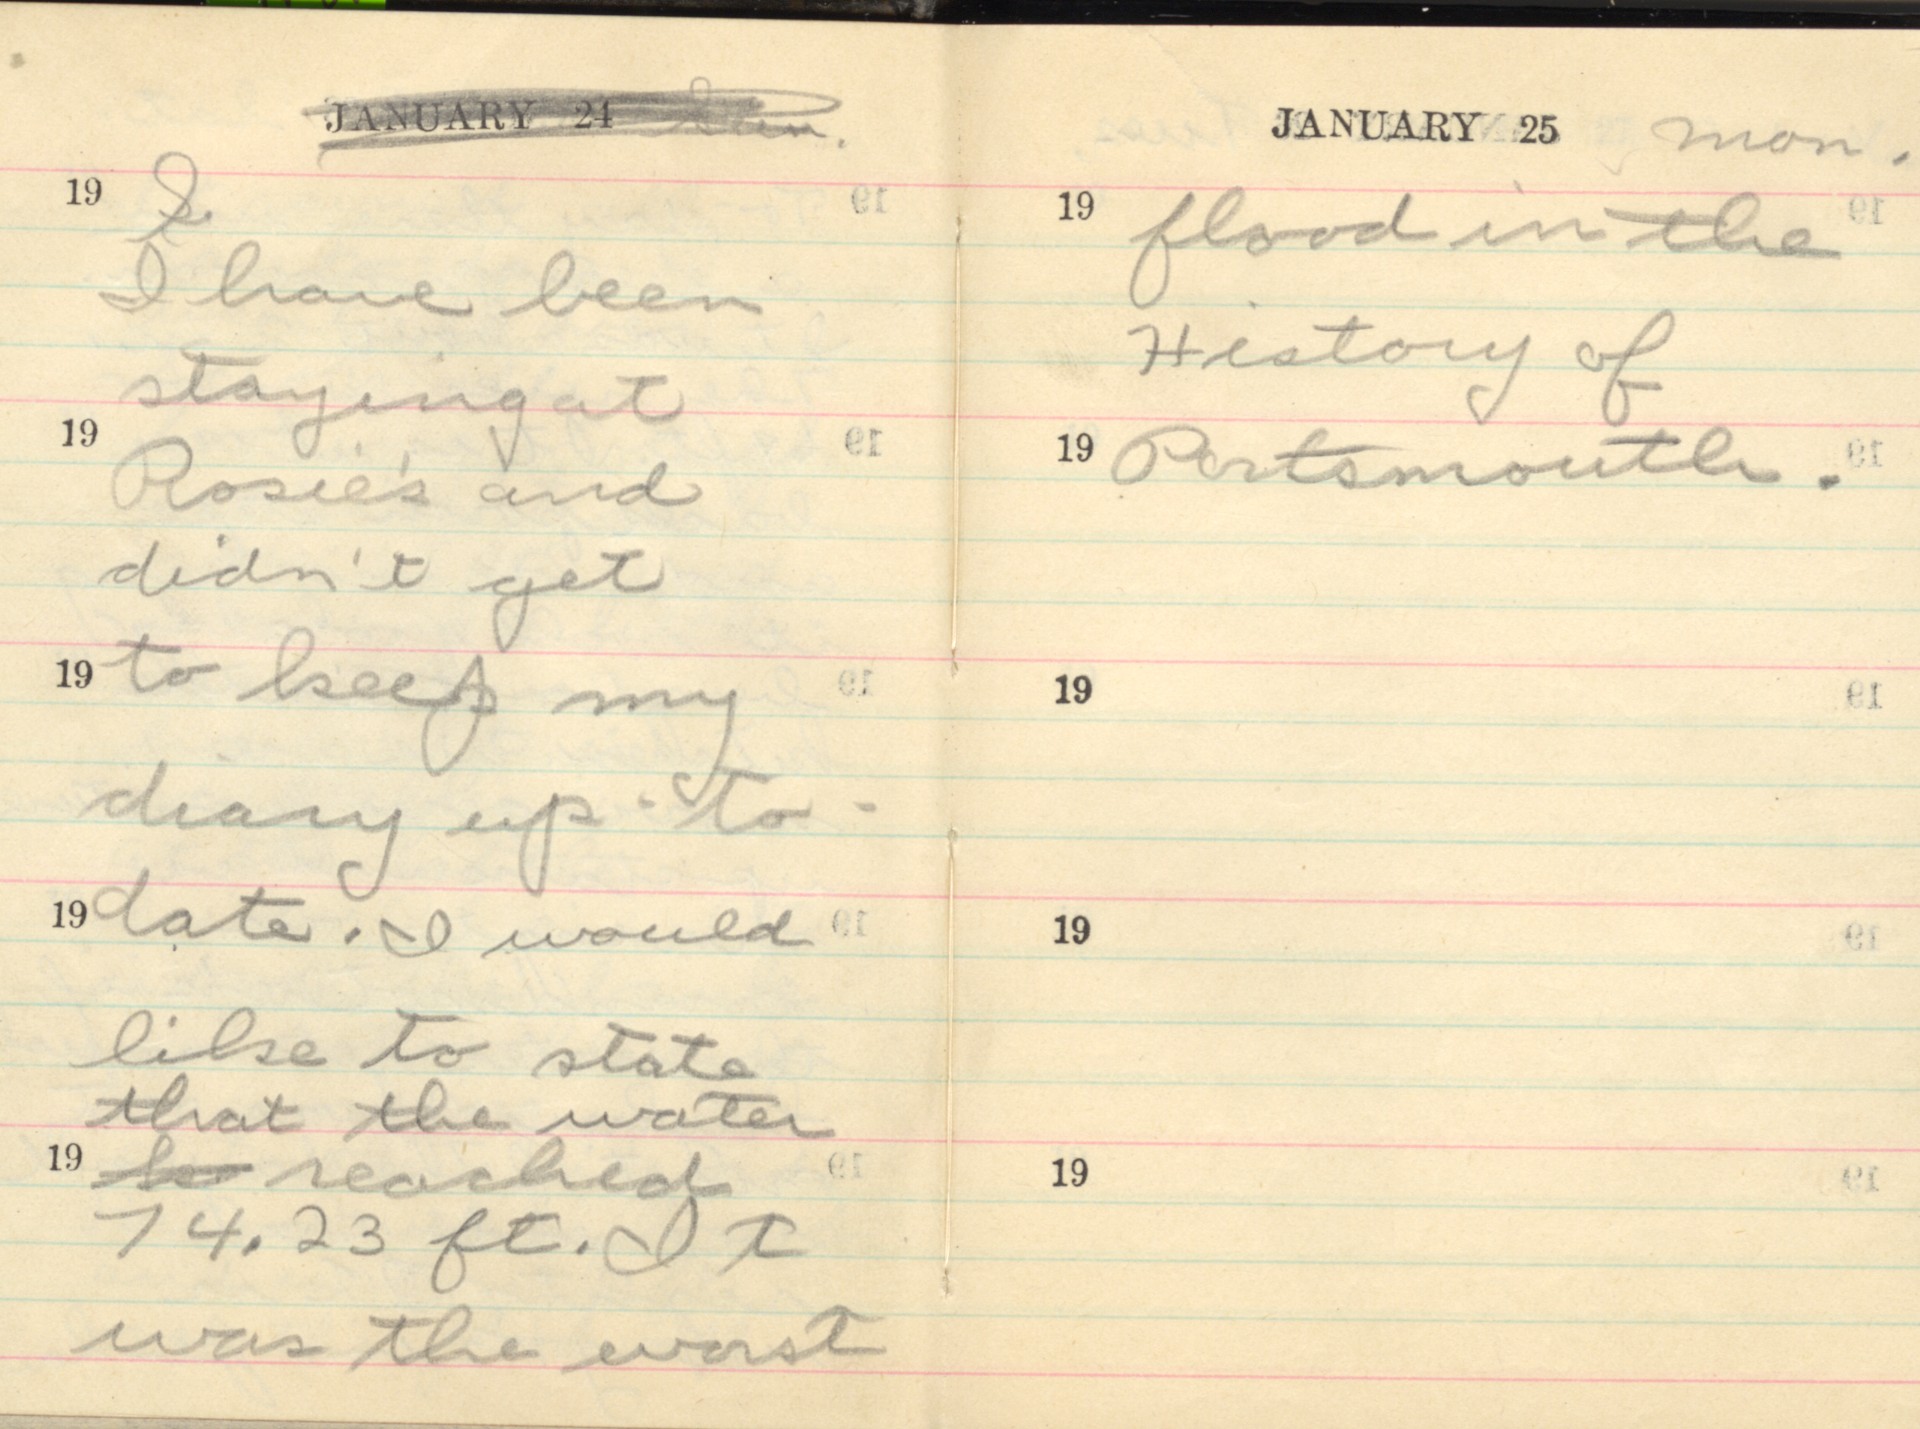 JANUARY 24 Sun.
19 I
I have been
staying at
19 Rosie's and
didn't get
19 to keep my
diary up-to-
19 date. I would
like to state
that the water
19 reached
74.23 ft. It
was the worst
JANUARY 25 mon.
19 flood in the
History of
19 Portsmouth.
19
19
19